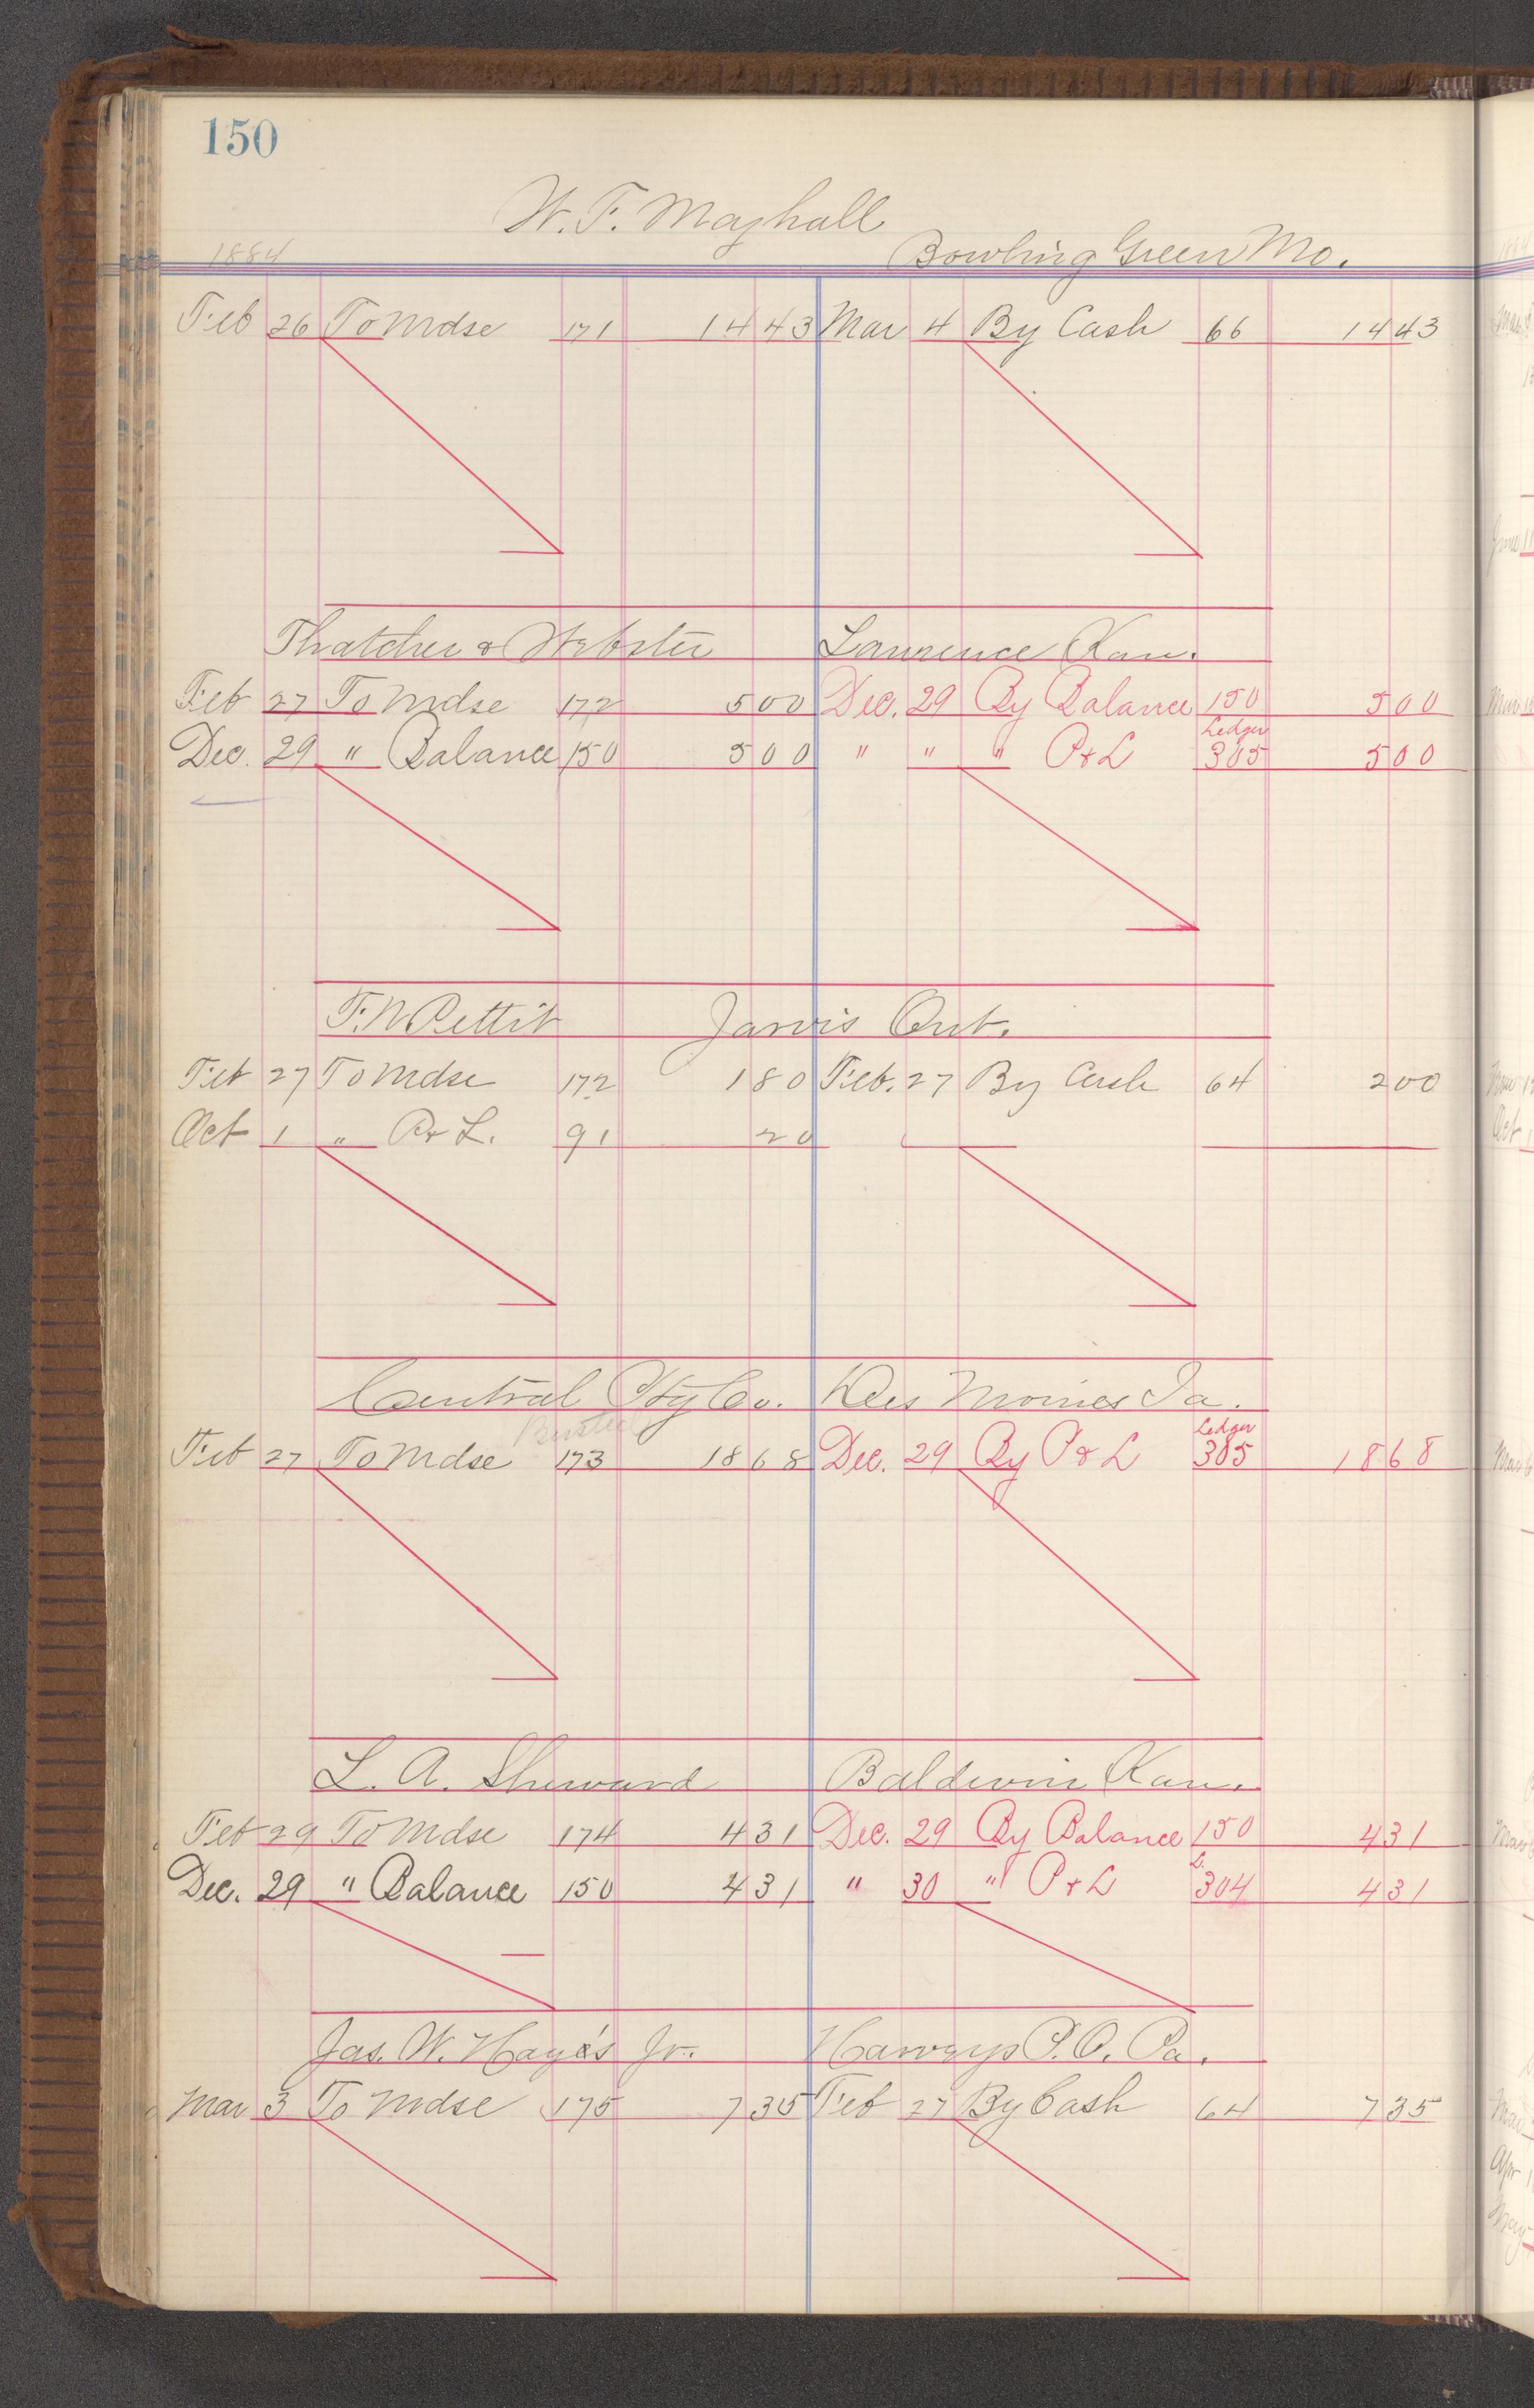 150
W. F. Mayhall
1884 Bowling Green Mo.
Feb 26 To Mdse 171 14 43 Mar 4 By Cash 66 14 43
Thatcher & Webster Lawrence Kan.
Feb 27 To Mdse 172 5 00 Dec. 29 By Balance 150 5 00
Ledger
Dec. 29 " Balance 150 5 00 " " " P & L 305 5 00
F. N. Pettit Jarvis Ont.
Feb 27 To Mdse 172 1 80 Feb. 27 By Cash 64 2 00
Oct 1 " P & L. 91 20
Central Pty Co. Des Moines Ia.
Busted Ledger
Feb 27 To Mdse 173 18 68 Dec. 29 By P & L 305 18 68
L. A. Sheward Baldwin Kan.
Feb 29 To Mdse 174 4 31 Dec. 29 By Balance 150 4 31
L.
Dec. 29 " Balance 150 4 31 " 30 " P & L 304 4 31
Jas. W. Haye's Jr. Harveys P.O. Pa.
Mar 3 To Mdse 175 7 35 Feb 27 By Cash 64 7 35